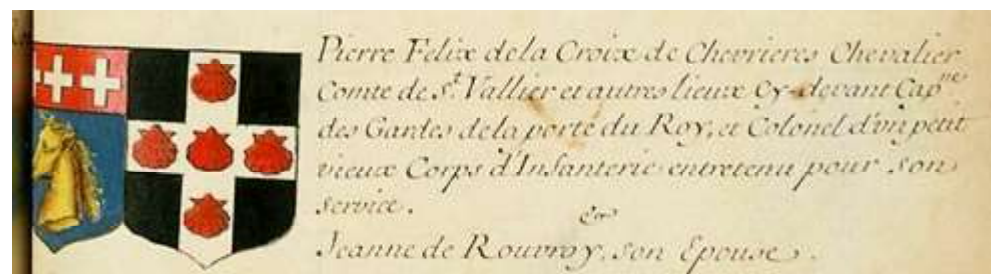 Pierre Felix dela Croix de Chevrieres Chevalier
Comte de St. Vallier et autres lieux Cy-devant Capne
des Gardes dela porte du Roy, et Colonel d'un petit
vieux Corps d'Infanterie entretenu pour son
service.
&
Jeanne de Rouvroy, son Epouse.